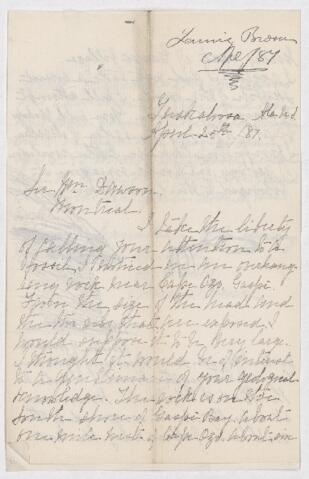 Brown
Apl /87
April 20th /87.
Sir Wm Dawson
Montreal.
I take the liberty
of calling your attention to a
fossil, I noticed in an overhang
ing rock near Cape Ozo, Gaspé
From the size of the head and
the two ribs that are exposed, I
would suppose it to be very large.
I thought it would be of interest
to a gentleman of your geological
knowledge. The rock is on the
south shore of Gaspé Bay, about
one mile west of Cape Ozo, about